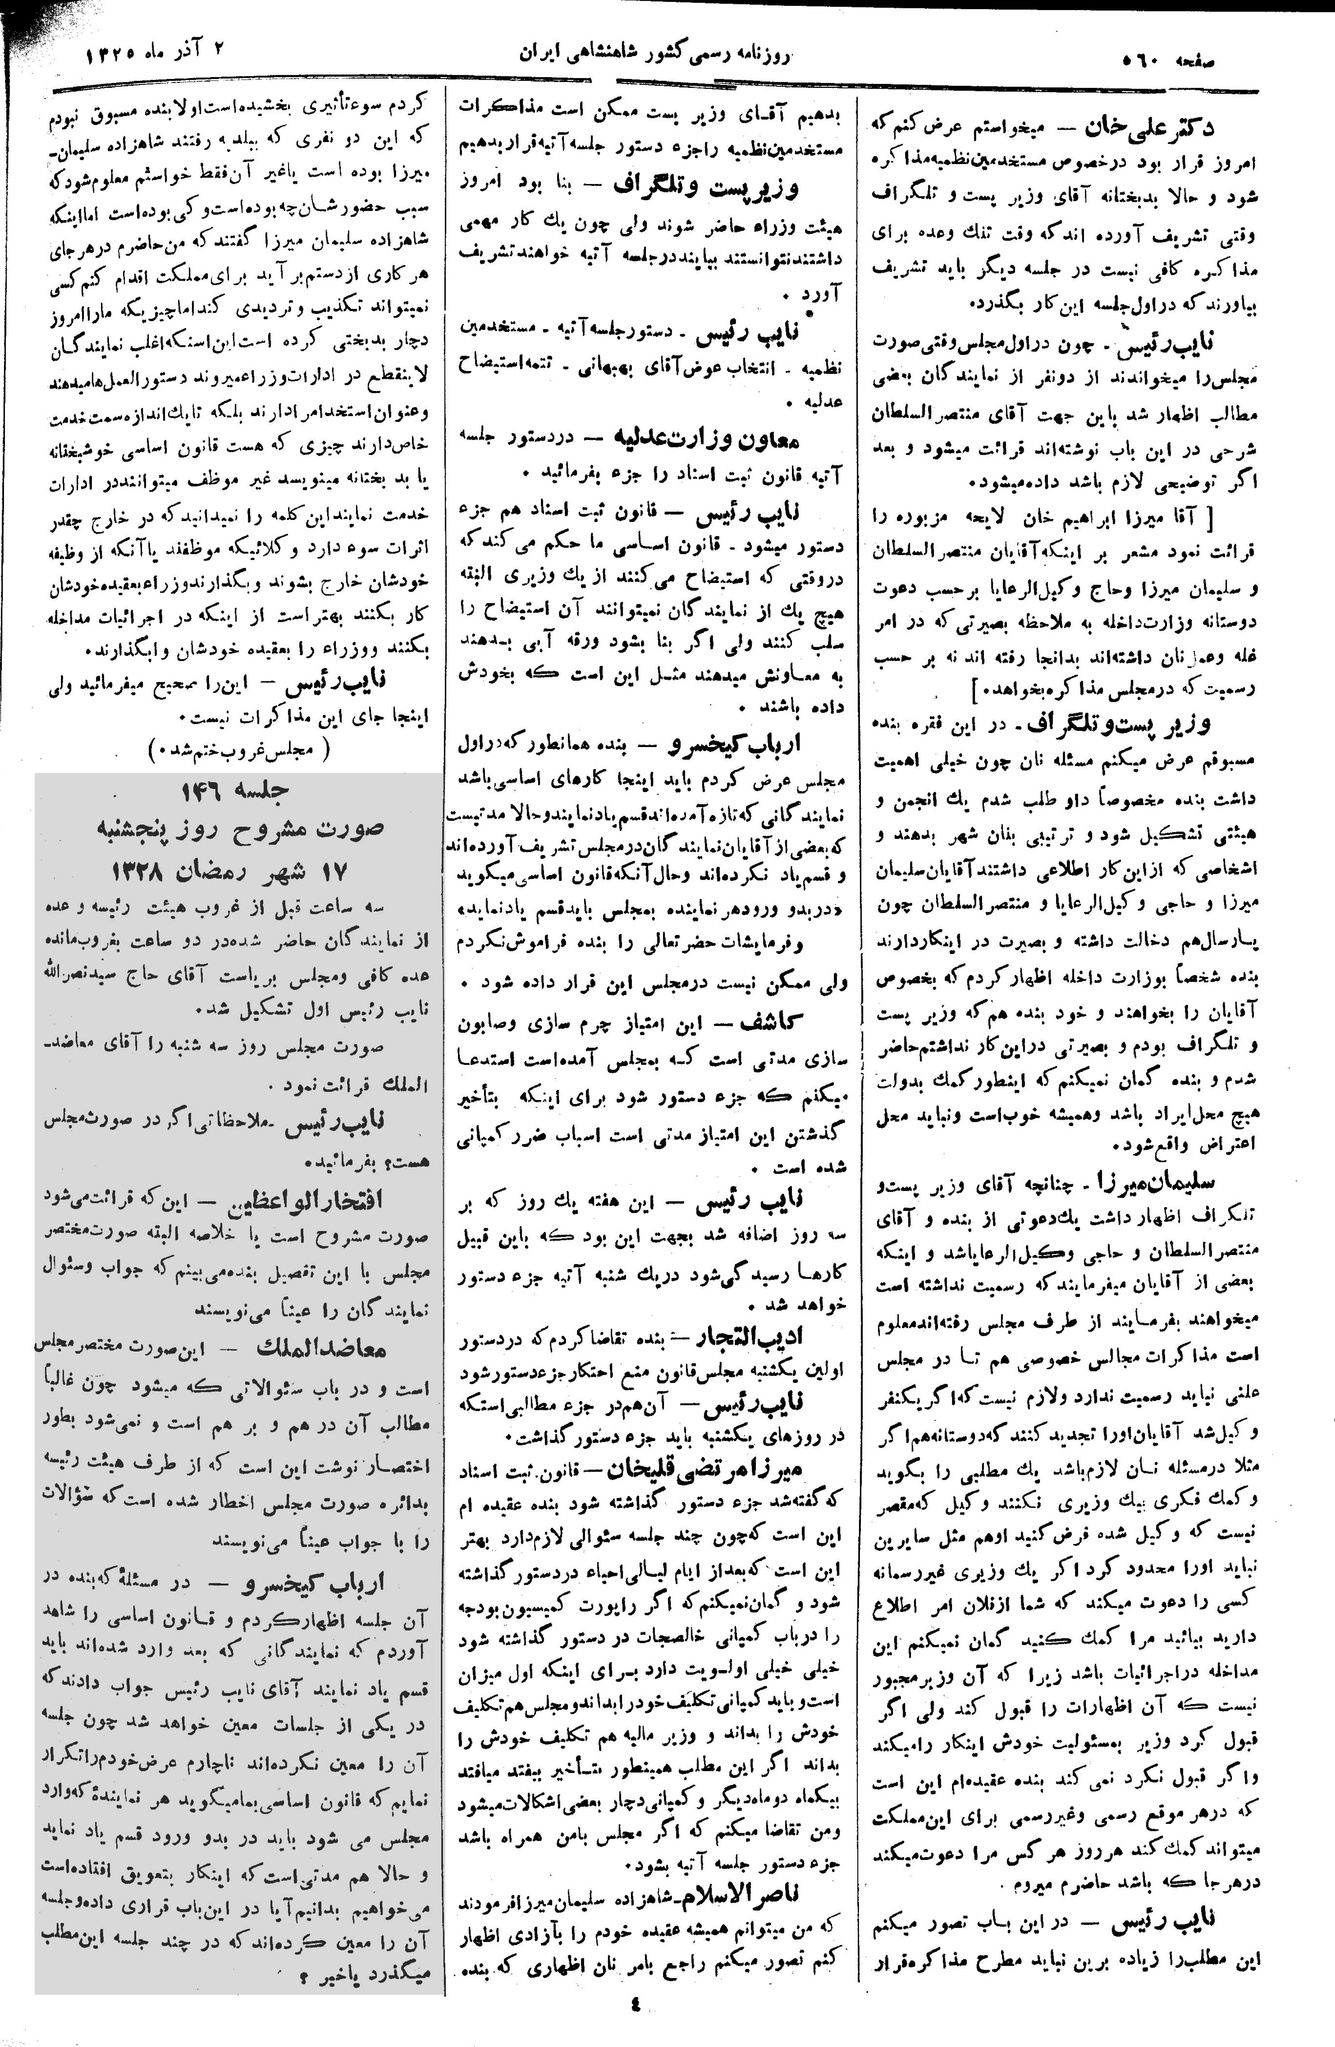 صفحه ۵۶۰
روزنامه رسمی کشور شاهنشاهی ایران
۲ آذر ماه ۱۳۲۵
دکتر علی خان — میخواستم عرض کنم که
امروز قرار بود درخصوص مستخدمین نظمیه مذاکره
شود و حالا بدبختانه آقای وزیر پست و تلگراف
وقتی تشریف آورده اند که وقت تنگ وعده برای
مذاکره کافی نیست در جلسه دیگر باید تشریف
بیاورند که در اول جلسه این کار بگذرد.
نایب رئیس - چون در اول مجلس وقتی صورت
مجلس را میخواندند از دونفر از نمایندگان بعضی
مطالب اظهار شد باین جهت آقای منتصر السلطان
شرحی در این باب نوشته‌اند قرائت میشود و بعد
اگر توضیحی لازم باشد داده میشود.
[ آقا میرزا ابراهیم خان لایحه مزبوره را
قرائت نمود مشعر بر اینکه آقایان منتصر السلطان
و سلیمان میرزا وحاج وکیل الرعایا بر حسب دعوت
دوستانه وزارت داخله به ملاحظه بصیرتی که در امر
غله وعمل نان داشته‌اند بدانجا رفته اند نه بر حسب
رسمیت که در مجلس مذاکره بخواهد. ]
وزیر پست و تلگراف - در این فقره بنده
مسبوقم عرض میکنم مسئله نان چون خیلی اهمیت
داشت بنده مخصوصاً داو طلب شدم یك انجمن و
هیئتی تشکیل شود و ترتیبی بنان شهر بدهند و
اشخاصی که از این کار اطلاعی داشتند آقایان سلیمان
میرزا و حاجی وکیل الرعایا و منتصر السلطان چون
پارسال هم دخالت داشته و بصیرت در اینکار دارند
بنده شخصاً بوزارت داخله اظهار کردم که بخصوص
آقایان را بخواهند و خود بنده هم که وزیر پست
و تلگراف بودم و بصیرتی در این کار نداشتم حاضر
شدم و بنده گمان نمیکنم که اینطور کمك بدولت
هیچ محل ایراد باشد وهمیشه خوب است ونباید محل
اعتراض واقع شود.
سلیمان میرزا - چنانچه آقای وزیر پست و
تلگراف اظهار داشت یك دعوتی از بنده و آقای
منتصر السلطان و حاجی وکیل الرعایا شد و اینکه
بعضی از آقایان میفرمایند که رسمیت نداشته است
میخواهند بفرمایند از طرف مجلس رفته‌اند معلوم
است مذاکرات مجالس خصوصی هم تا در مجلس
علنی نیاید رسمیت ندارد ولازم نیست که اگر یکنفر
وکیل شد آقایان اورا تجدید کنند که دوستانه هم اگر
مثلا در مسئله نان لازم باشد یك مطلبی را بگوید
وکمك فکری بیك وزیری نکنند وکیل که مقصر
نیست که وکیل شده فرض کنید اوهم مثل سایرین
نباید اورا محدود کرد اگر یك وزیری غیر رسمانه
کسی را دعوت میکند که شما از فلان امر اطلاع
دارید بیائید مرا کمك کنید گمان نمیکنم این
مداخله در اجرائیات باشد زیرا که آن وزیر مجبور
نیست که آن اظهارات را قبول کند ولی اگر
قبول کرد وزیر بمسئولیت خودش اینکار را میکند
واگر قبول نکرد نمی کند بنده عقیده‌ام این است
که در هر موقع رسمی وغیر رسمی برای این مملکت
میتواند کمك کند هر روز هر کس مرا دعوت میکند
در هر جا که باشد حاضرم میروم .
نایب رئیس — در این باب تصور میکنم
این مطلب را زیاده بر این نباید مطرح مذاکره قرار
بدهیم آقای وزیر پست ممکن است مذاکرات
مستخدمین نظمیه را جزء دستور جلسه آتیه قرار بدهیم
وزیر پست و تلگراف — بنا بود امروز
هیئت وزراء حاضر شوند ولی چون یك کار مهمی
داشتند نتوانستند بیایند در جلسه آتیه خواهند تشریف
آورد .
نایب رئیس - دستور جلسه آتیه - مستخدمین
نظمیه - انتخاب عوض آقای بهبهانی - تتمه استیضاح
عدلیه .
معاون وزارت عدلیه — در دستور جلسه
آتیه قانون ثبت اسناد را جزء بفرمائید .
نایب رئیس — قانون ثبت اسناد هم جزء
دستور میشود - قانون اساسی ما حکم می کند که
در وقتی که استیضاح می‌کنند از یك وزیری البته
هیچ یك از نمایندگان نمیتوانند آن استیضاح را
سلب کنند ولی اگر بنا بشود ورقه آبی بدهند
به معاونش میدهند مثل این است که بخودش
داده باشند .
ارباب کیخسرو — بنده همانطور که در اول
مجلس عرض کردم باید اینجا کارهای اساسی باشد
نمایندگانی که تازه آمده‌اند قسم یاد نمایند وحالا مدتیست
که بعضی از آقایان نمایندگان در مجلس تشریف آورده‌اند
و قسم یاد نکرده‌اند وحال آنکه قانون اساسی میگوید
«در بدو ورود هر نماینده بمجلس باید قسم یاد نماید»
وفرمایشات حضرتعالی را بنده فراموش نکردم
ولی ممکن نیست در مجلس این قرار داده شود .
کاشف — این امتیاز چرم سازی وصابون
سازی مدتی است که بمجلس آمده است استدعا
میکنم که جزء دستور شود برای اینکه بتأخیر
گذشتن این امتیاز مدتی است اسباب ضرر کمپانی
شده است .
نایب رئیس — این هفته یك روز که بر
سه روز اضافه شد بجهت این بود که باین قبیل
کارها رسیدگی شود در یك شنبه آتیه جزء دستور
خواهد شد .
ادیب التجار — بنده تقاضا کردم که در دستور
اولین یکشنبه مجلس قانون منع احتکار جزء دستور شود
نایب رئیس — آن هم در جزء مطالبی است که
در روزهای یکشنبه باید جزء دستور گذاشت.
میرزا مرتضی قلیخان — قانون ثبت اسناد
که گفته شد جزء دستور گذاشته شود بنده عقیده ام
این است که چون چند جلسه سئوالی لازم دارد بهتر
این است که بعد از ایام لیالی احیاء در دستور گذاشته
شود و گمان نمیکنم که اگر راپورت کمیسیون بودجه
را در باب کمپانی خالصجات در دستور گذاشته شود
خیلی خیلی اولویت دارد برای اینکه اول میزان
است و باید کمپانی تکلیف خود را بداند و مجلس هم تکلیف
خودش را بداند و وزیر مالیه هم تکلیف خودش را
بداند اگر این مطلب همینطور بتأخیر بیفتد میافتد
بیکماه دو ماه دیگر و کمپانی دچار بعضی اشکالات میشود
ومن تقاضا میکنم که اگر مجلس بامن همراه باشد
جزء دستور جلسه آتیه بشود.
ناصر الاسلام - شاهزاده سلیمان میرزا فرمودند
که من میتوانم همیشه عقیده خودم را بآزادی اظهار
کنم تصور میکنم راجع بامر نان اظهاری که بنده
کردم سوء تأثیری بخشیده است اولا بنده مسبوق نبودم
که این دو نفری که ببلدیه رفتند شاهزاده سلیمان-
میرزا بوده است یا غیر آن فقط خواستم معلوم شود که
سبب حضورشان چه بوده است و کی بوده است اما اینکه
شاهزاده سلیمان میرزا گفتند که من حاضرم در هر جای
هر کاری از دستم بر آید برای مملکت اقدام کنم کسی
نمیتواند تکذیب و تردیدی کند اما چیزیکه ما را امروز
دچار بدبختی کرده است این است که اغلب نمایندگان
لاینقطع در ادارات وزراء میروند دستور العمل ها میدهند
وعنوان استخدام را دارند بلکه تا یك اندازه سمت خدمت
خاص دارند چیزی که هست قانون اساسی خوشبختانه
یا بد بختانه مینویسد غیر موظف میتوانند در ادارات
خدمت نمایند این کلمه را نمیدانید که در خارج چقدر
اثرات سوء دارد و کلائیکه موظفند یا آنکه از وظیفه
خودشان خارج بشوند و بگذارند وزراء بعقیده خودشان
کار بکنند بهتر است از اینکه در اجرائیات مداخله
بکنند و وزراء را بعقیده خودشان وابگذارند.
نایب رئیس — این را صحیح میفرمائید ولی
اینجا جای این مذاکرات نیست.
( مجلس غروب ختم شد . )
جلسه ۱۴۶
صورت مشروح روز پنجشنبه
۱۷ شهر رمضان ۱۳۲۸
سه ساعت قبل از غروب هیئت رئیسه و عده
از نمایندگان حاضر شده در دو ساعت بغروب مانده
عده کافی ومجلس بریاست آقای حاج سید نصرالله
نایب رئیس اول تشکیل شد.
صورت مجلس روز سه شنبه را آقای معاضد-
الملك قرائت نمود .
نایب رئیس - ملاحظاتی اگر در صورت مجلس
هست؟ بفرمائید.
افتخار الواعظین — این که قرائت می‌شود
صورت مشروح است یا خلاصه البته صورت مختصر
مجلس با این تفصیل بنده می‌بینم که جواب وسئوال
نمایندگان را عیناً می‌نویسند
معاضد الملك — این صورت مختصر مجلس
است و در باب سئوالاتی که میشود چون غالباً
مطالب آن در هم و بر هم است و نمی‌شود بطور
اختصار نوشت این است که از طرف هیئت رئیسه
بدائره صورت مجلس اخطار شده است که سؤالات
را با جواب عیناً می‌نویسند
ارباب کیخسرو — در مسئلهٔ که بنده در
آن جلسه اظهار کردم و قانون اساسی را شاهد
آوردم که نمایندگانی که بعد وارد شده‌اند باید
قسم یاد نمایند آقای نایب رئیس جواب دادند که
در یکی از جلسات معین خواهد شد چون جلسه
آن را معین نکرده‌اند ناچارم عرض خودم را تکرار
نمایم که قانون اساسی بمامیگوید هر نمایندهٔ که وارد
مجلس می شود باید در بدو ورود قسم یاد نماید
و حالا هم مدتی است که اینکار بتعویق افتاده است
می‌خواهیم بدانیم آیا در این باب قراری داده و جلسه
آن را معین کرده‌اند که در چند جلسه این مطلب
میگذرد یاخیر ؟
٤